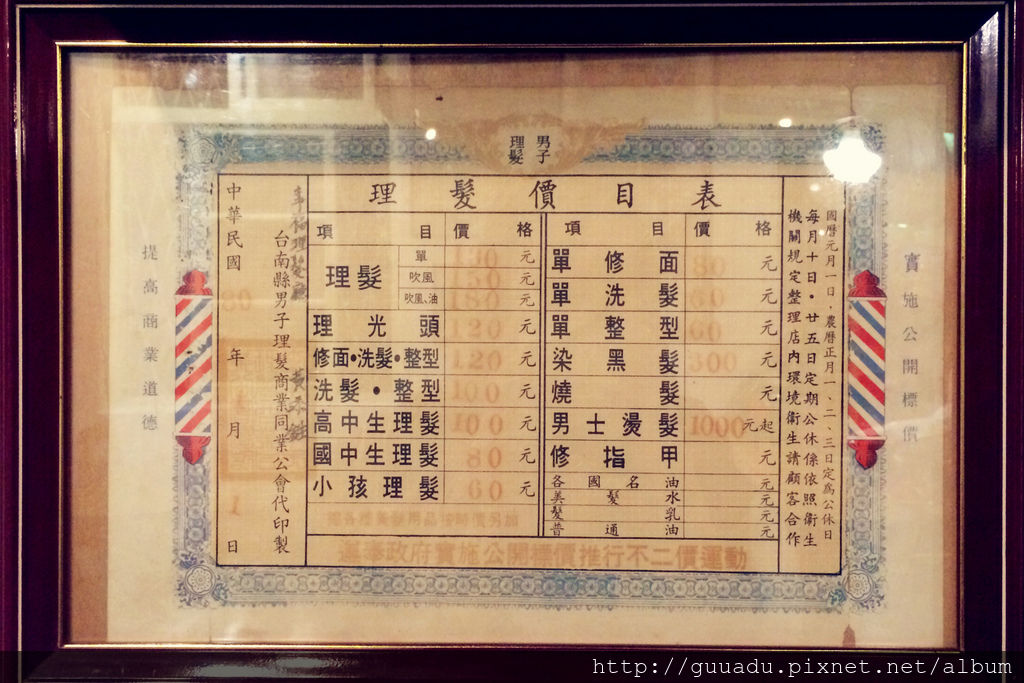 男子
理髮
理髮價目表
項目 價格
理髮 單 130 元
吹風 50 元
吹風、油 180 元
理光頭 120 元
修面•洗髮•整型 120 元
洗髮•整型 100 元
高中生理髮 100 元
國中生理髮 80 元
小孩理髮 60 元
項目 價格
單修面 元
單洗髮 60 元
單整型 60 元
染黑髮 300 元
燒髮 元
男士燙髮 1000 元起
修指甲 元
各國名油 元
美髮水 元
髮乳 元
普通油 元
遵奉政府實施公開標價推行不二價運動
國曆元月一日，農曆正月一、二、三日定為公休日
每月十日•廿五日定期公休係依照衛生
機關規定整理店內環境衛生請顧客合作
台南縣男子理髮商業同業公會代印製
中華民國 80 年 1 月 1 日
實施公開標價
提高商業道德
http://guuadu.pixnet.net/album